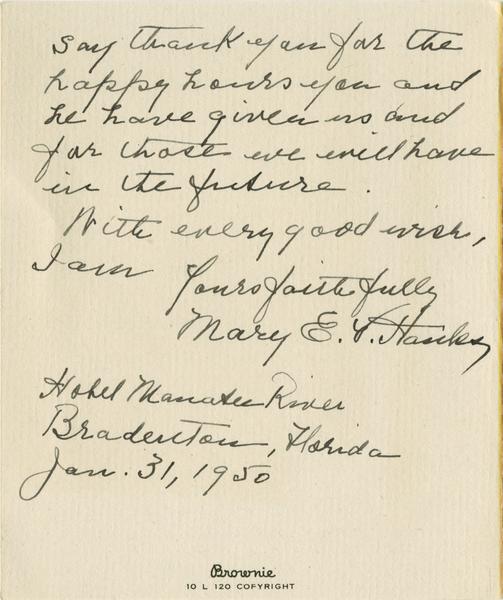 say thank you for the
happy hours you and
he have given us and
for those we will have
in the future.
With every good wish,
I am
Yours faithfully
Mary E. V. Hanks
Hotel Manatee River
Bradenton, Florida
Jan. 31, 1950
Brownie
10 L 120 COPYRIGHT